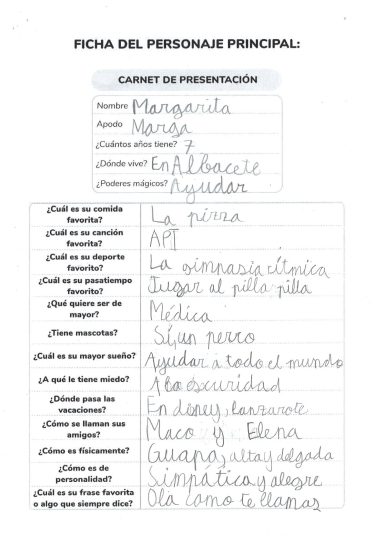 FICHA DEL PERSONAJE PRINCIPAL:
CARNET DE PRESENTACIÓN
Nombre Margarita
Apodo Marga
¿Cuántos años tiene? 7
¿Dónde vive? En Albacete
¿Poderes mágicos? Ayudar
¿Cuál es su comida
favorita?
La pizza
¿Cuál es su canción
favorita?
API
¿Cuál es su deporte
favorito?
La gimnasia rítmica
¿Cuál es su pasatiempo
favorito?
Jugar al pilla pilla
¿Qué quiere ser de
mayor?
Médica
¿Tiene mascotas?
Sí, un perro
¿Cuál es su mayor sueño?
Ayudar a todo el mundo
¿A qué le tiene miedo?
A la oscuridad
¿Dónde pasa las
vacaciones?
En disney, lanzarote
¿Cómo se llaman sus
amigos?
Maco y Elena
¿Cómo es físicamente?
Guapa, alta y delgada
¿Cómo es de
personalidad?
Simpática y alegre
¿Cuál es su frase favorita
o algo que siempre dice?
Ola como te llamas